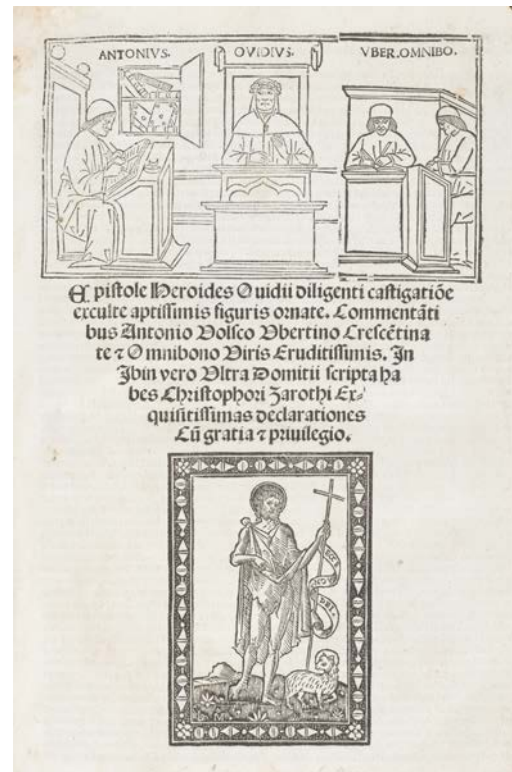 ANTONIVS. OVIDIVS. VBER.OMNIBO.
Epistole Heroides Ouidii diligenti castigatiōe
exculte aptissimis figuris ornate. Commentāti
bus Antonio Volsco Vbertino Crescētina
te ⁊ Omnibono Viris Eruditissimis. In
Ibin vero Vltra Domitii scripta ha
bes Christophori Zarothi Ex⸗
quisitissimas declarationes
Cū gratia ⁊ priuilegio.
DEI.